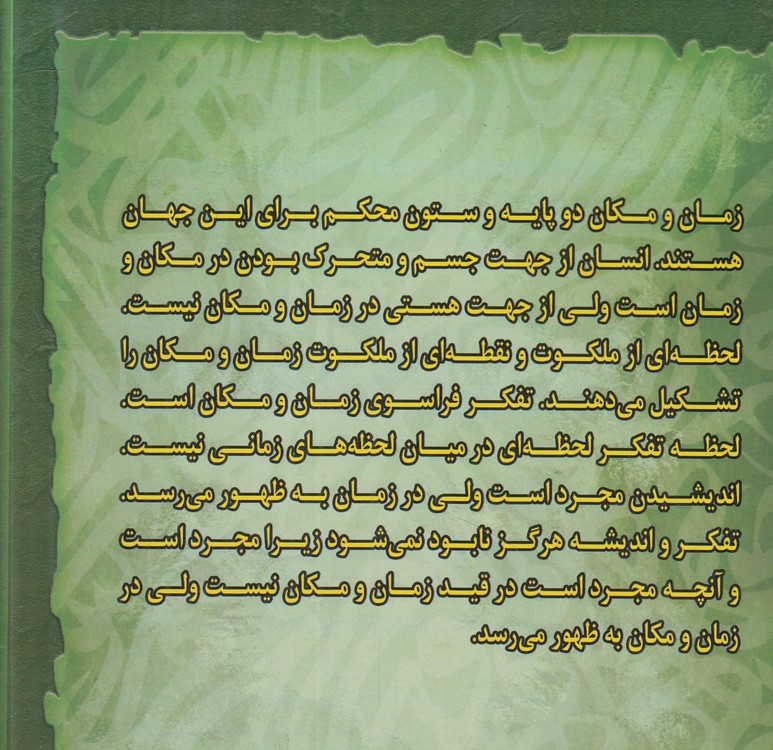 زمان و مکان دو پایه و ستون محکم برای این جهان
هستند. انسان از جهت جسم و متحرک بودن در مکان و
زمان است ولی از جهت هستی در زمان و مکان نیست.
لحظه‌ای از ملکوت و نقطه‌ای از ملکوت زمان و مکان را
تشکیل می‌دهند. تفکر فراسوی زمان و مکان است.
لحظه تفکر لحظه‌ای در میان لحظه‌های زمانی نیست.
اندیشیدن مجرد است ولی در زمان به ظهور می‌رسد.
تفکر و اندیشه هرگز نابود نمی‌شود زیرا مجرد است
و آنچه مجرد است در قید زمان و مکان نیست ولی در
زمان و مکان به ظهور می‌رسد.